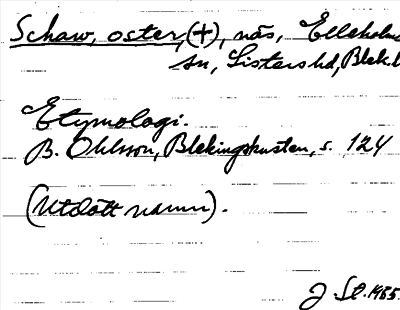 Schaw, oster, (+), näs, Elleholms
sn, Listers hd, Blek.l
Etymologi.
B. Ohlsson, Blekingskusten, s. 124
(Utdött namn).
J. St. 1955.